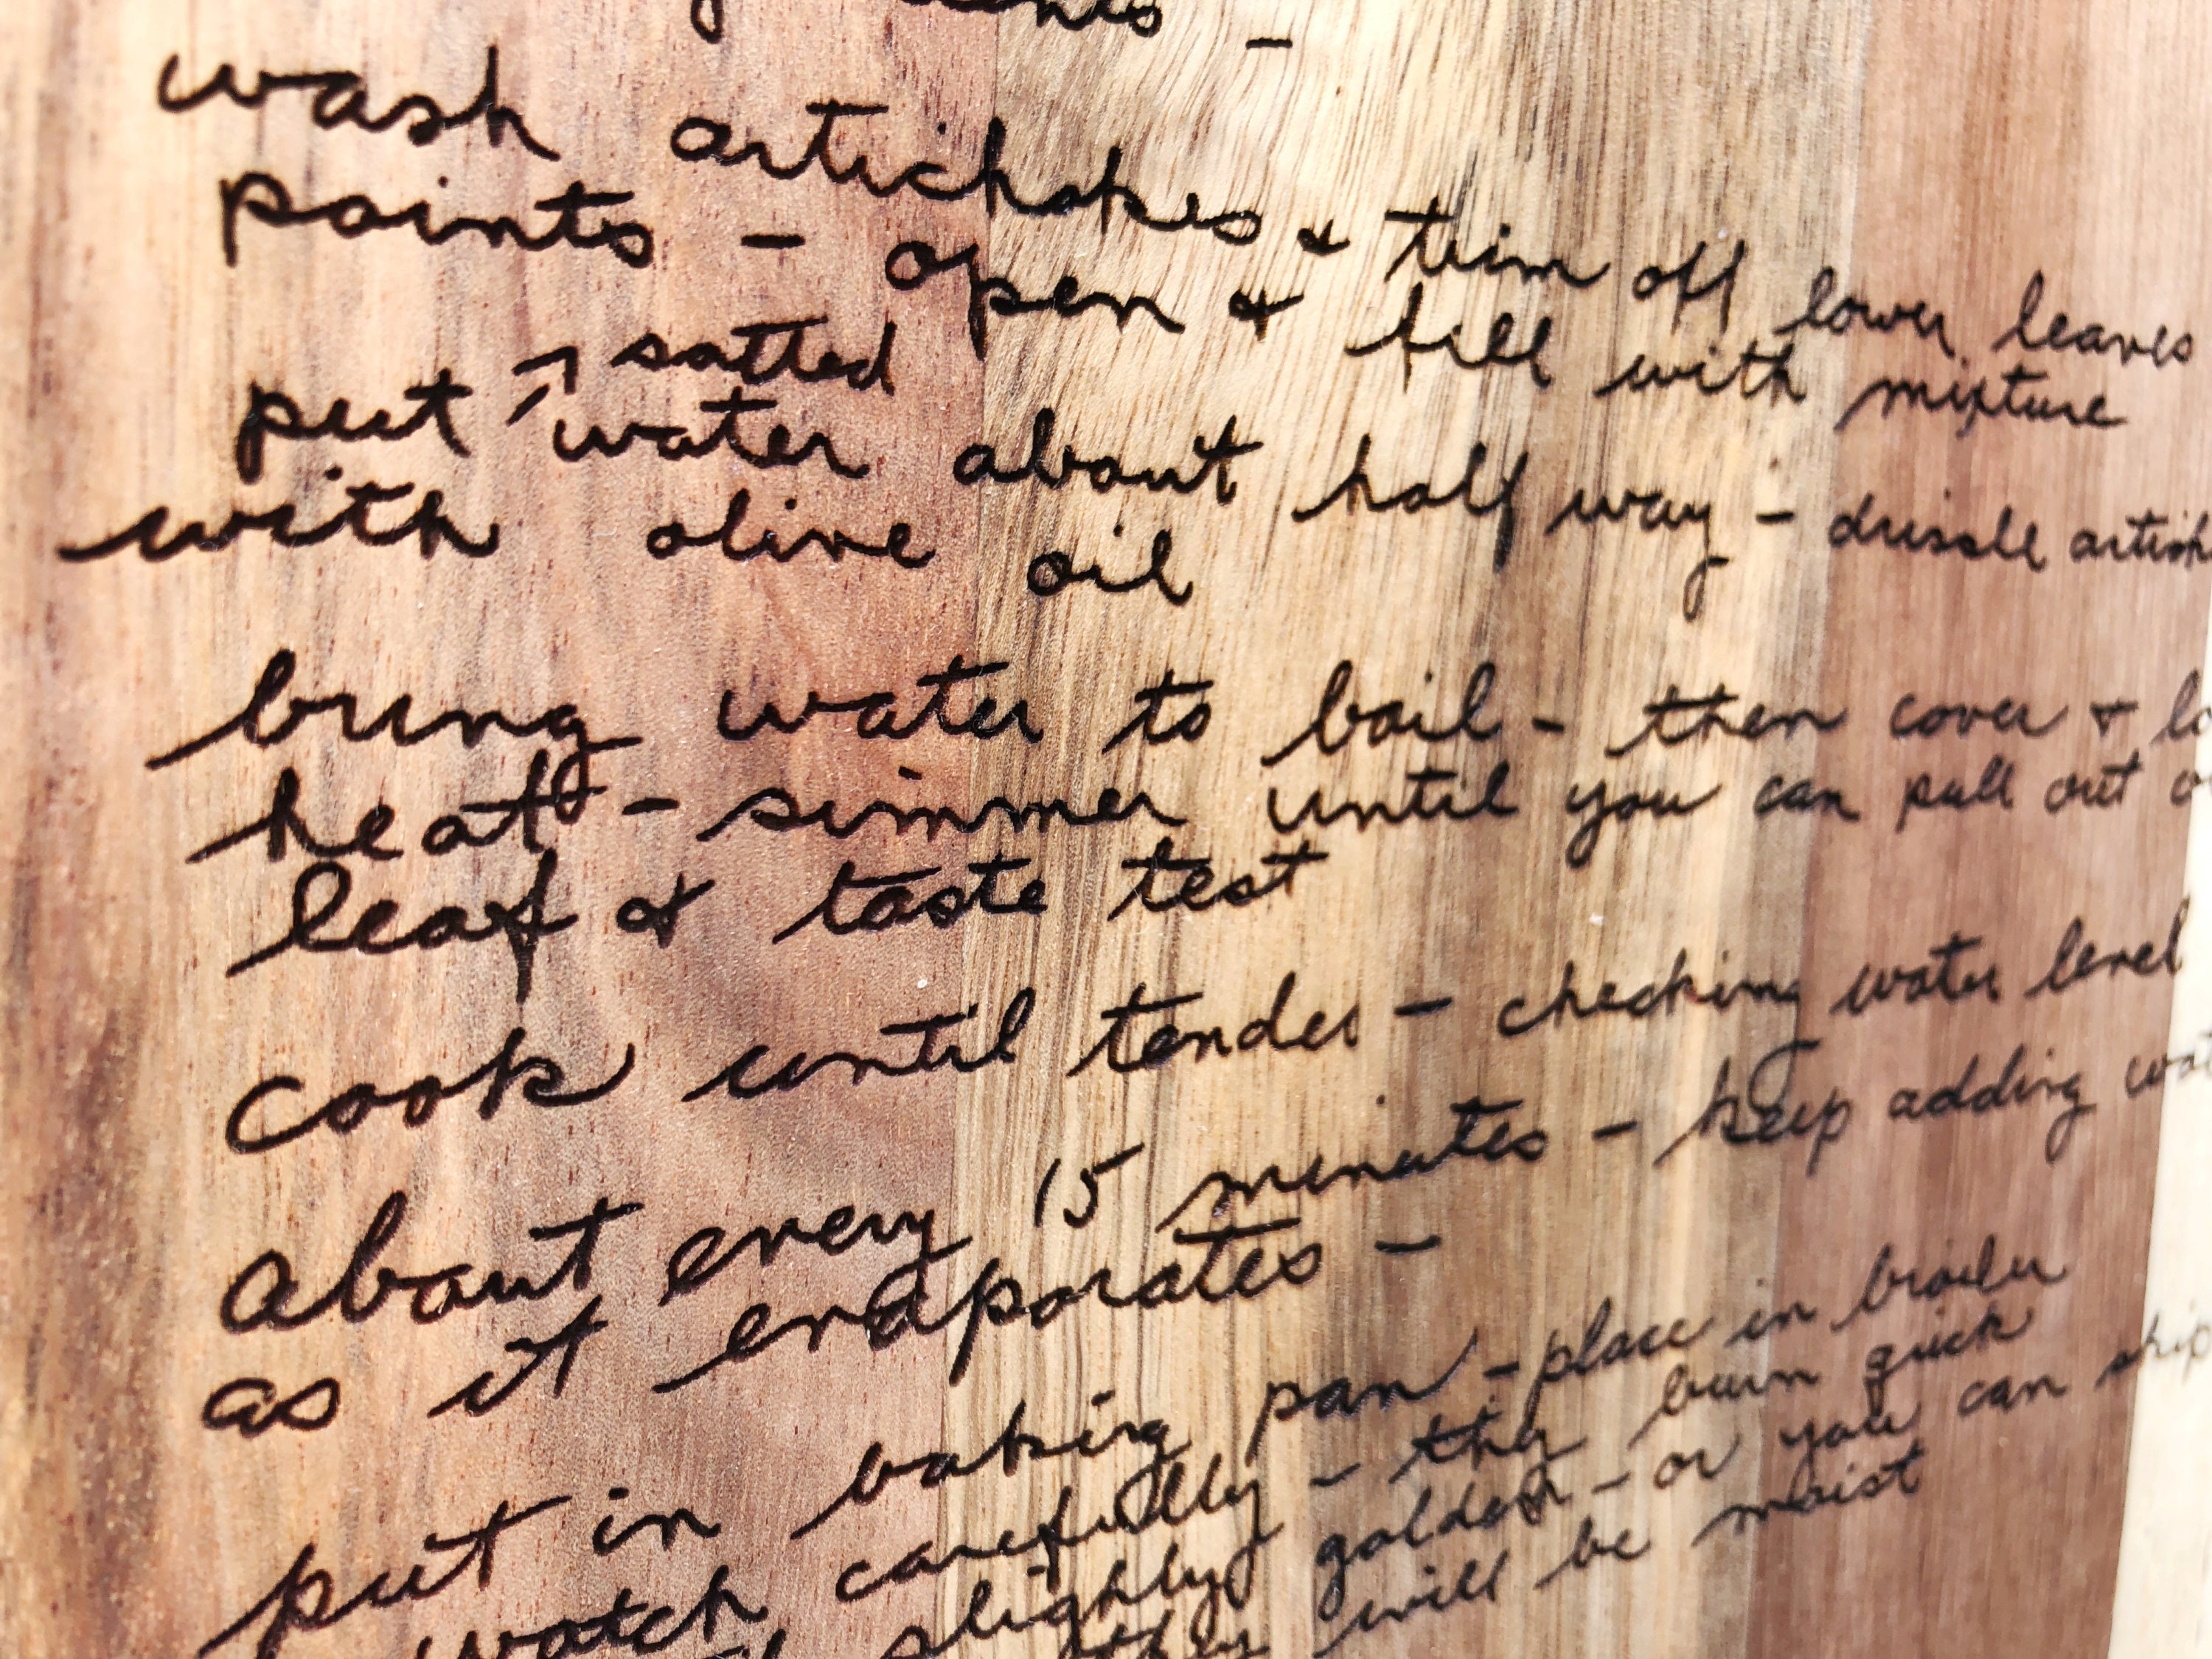 wash artichokes & trim off lower leaves
points - open & fill with mixture
salted
put water about half way - drissle artich
with olive oil
bring water to boil - then cover & lo
heat - simmer until you can pull out
leaf & taste test
cook until tender - checking water level
about every 15 minutes - keep adding wat
as it evaporates -
put in baking pan - place in broiler
watch carefully - they burn quick
slighly golden - or you can skip
will be moist